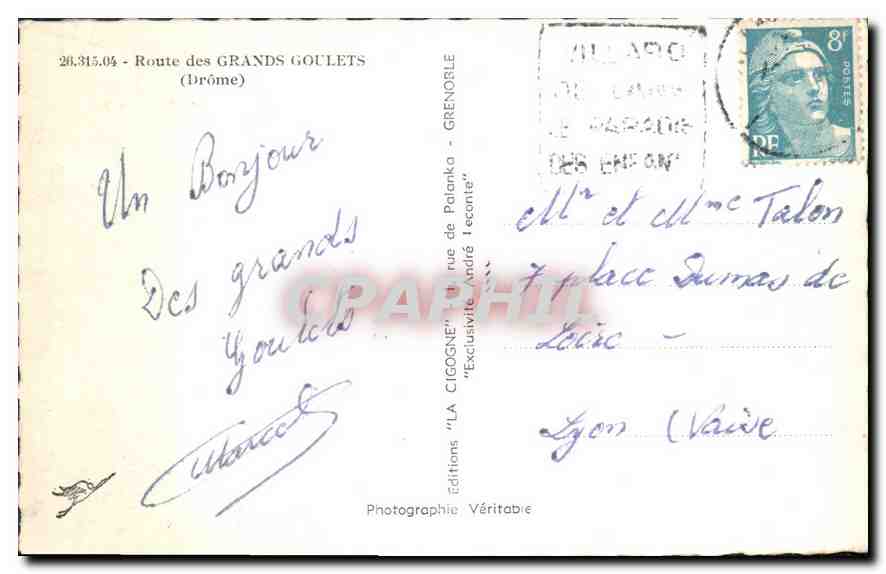 26.315.04 - Route des GRANDS GOULETS
(Drôme)
Un Bonjour
Des grands
Goulets
Marcel
Photographie Véritable
Editions "LA CIGOGNE" rue de Palanka - GRENOBLE
"Exclusivité André Leconte"
VILLARD
DE LANS
LE PARADIS
DES ENFANT
8F
POSTES
RF
Mr et Mme Talon
7 place Dumas de
Loire -
Lyon (Vaise
CPAPHIL